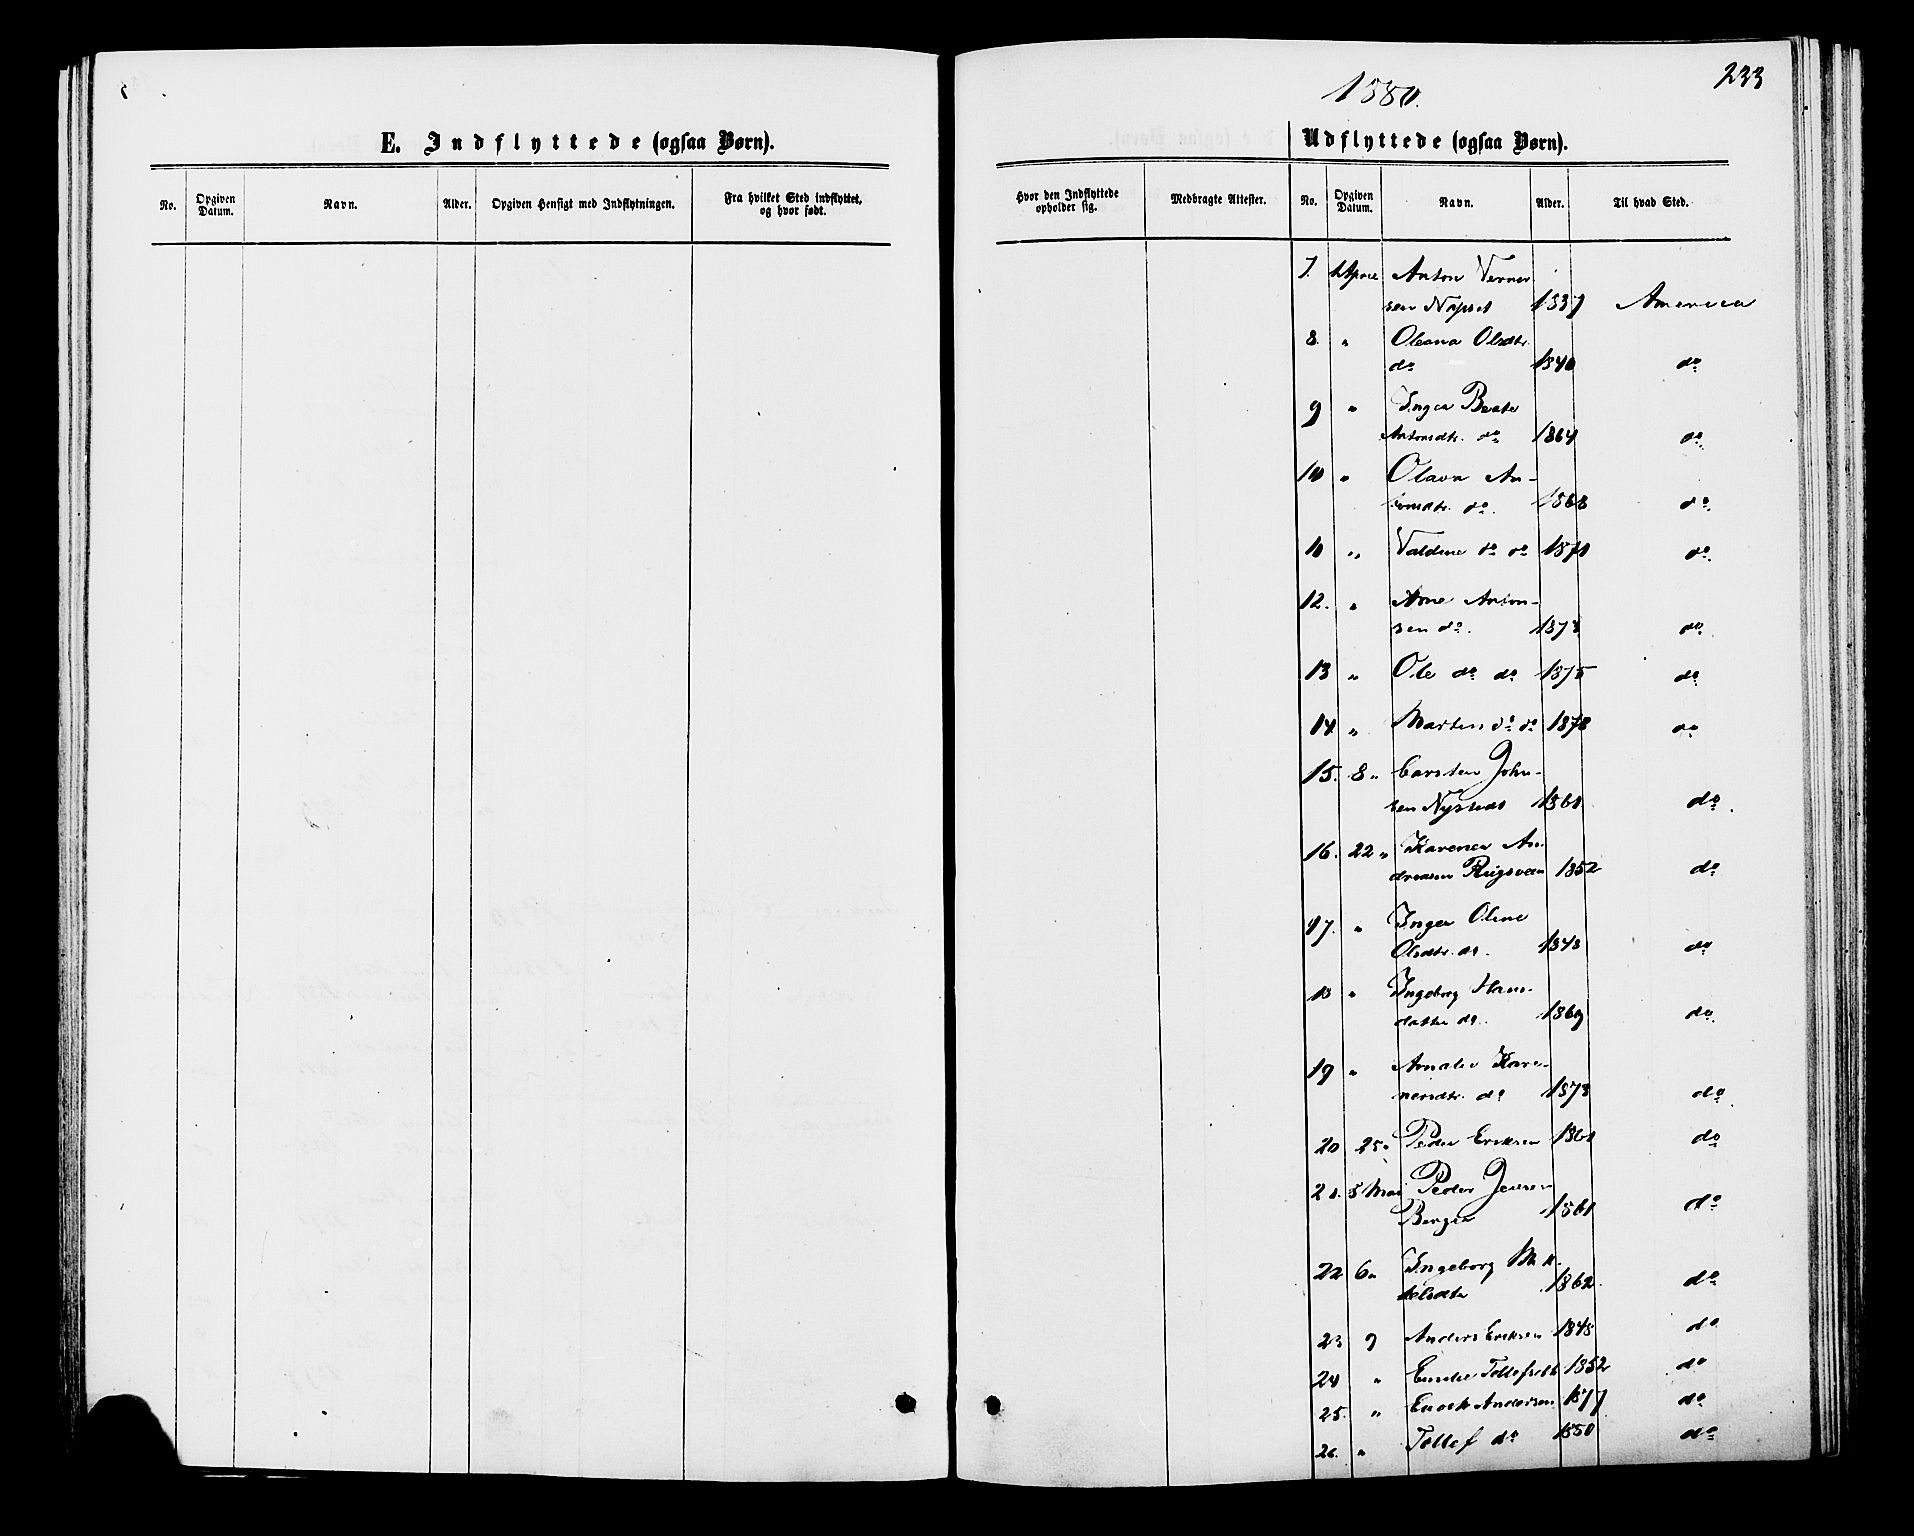 233
1880.
E. Indflyttede (ogsaa Børn).
No.
Opgiven Datum.
Navn.
Alder.
Opgiven Hensigt med Indflytningen.
Fra hvilket Sted indflyttet, og hvor født.
Udflyttede (ogsaa Børn).
Hvor den Indflyttede opholder sig.
Medbragte Attester.
No.
Opgiven Datum.
Navn.
Alder.
Til hvad Sted.
7. April Anton Verner
sen 1837 America
8. " Oleana Olsdtr.
do 1840 do
9 " Inger Beate
Antonsdtr. do 1864 do
10 " Olava An-
tonsdtr. do. 1868 do.
" Valdine do do do.
12. " Arne Anton-
sen do. do.
13 " Ole do do 1875 do
14 " Martin do do 1878 do
15. 8 " Carsten John-
sen Nystedt do.
16. 22 " Karenus An-
dreasen 1852 do
17. " Inger Oline
Olsdtr. do. 1848 do
18 " Ingeborg Hans-
datter do. 1869 do.
19 " Amalie Kare-
nusdtr. do do.
20 25 " Peder Eriksen do
21. 5 Mai Peder Jensen
Berger do
22 6 " Ingeborg Mik-
kelsdtr 1862. do
23 9 Anders Eriksen 1848 do
24 " Emilie Tollefsdtr 1852 do
25. " Enock Andersen 1877 do
26. " Tollef do do